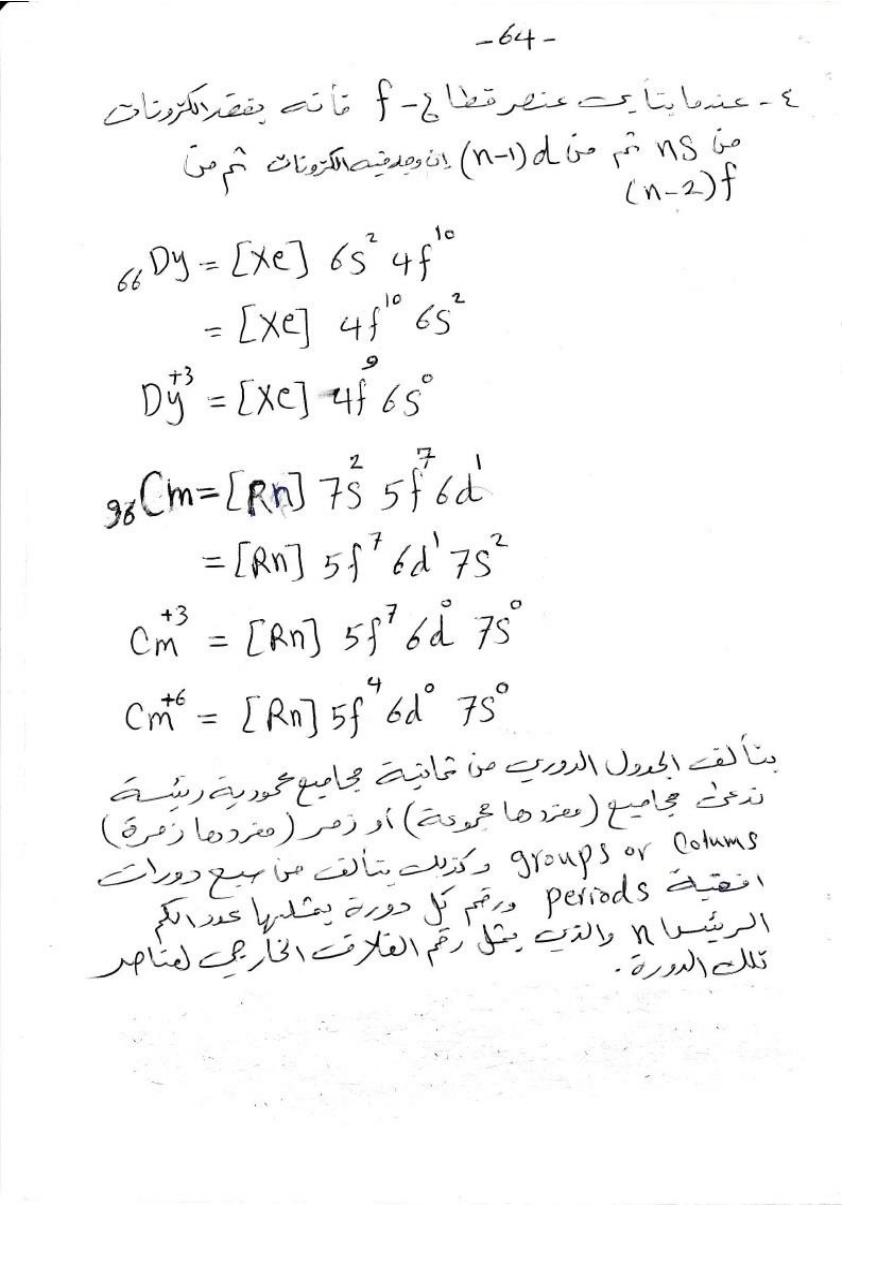 -64-
٤- عندما يتأين عنصر قطاع f- فأنه يفقد الكترونات
من ns ثم من (n-1)d إن وجد فيه الكترونات ثم من
(n-2)f
₆₆Dy = [Xe] 6s² 4f¹⁰
= [Xe] 4f¹⁰ 6s²
Dy⁺³ = [Xe] 4f⁹ 6s⁰
₉₆Cm = [Rn] 7s² 5f⁷ 6d¹
= [Rn] 5f⁷ 6d¹ 7s²
Cm⁺³ = [Rn] 5f⁷ 6d⁰ 7s⁰
Cm⁺⁶ = [Rn] 5f⁴ 6d⁰ 7s⁰
يتألف الجدول الدوري من ثمانية مجاميع عمودية رئيسة
تدعى مجاميع (مفردها مجموعة) أو زمر (مفردها زمرة)
groups or Colums وكذلك يتألف من سبع دورات
افقية periods ورقم كل دورة يمثلها عدد الكم
الرئيس n والذي يمثل رقم الغلاف الخارجي لعناصر
تلك الدورة.